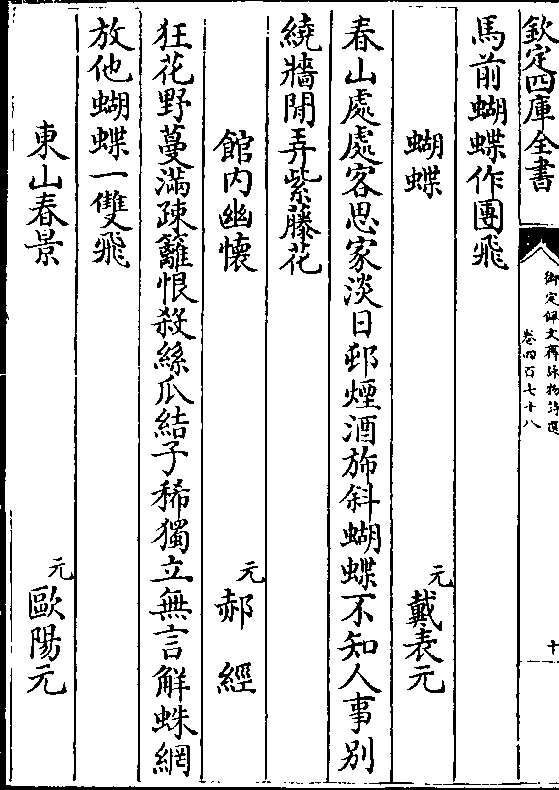 欽定四庫全書
御定佩文齋詠物詩選
卷四百七十八
十
馬前蝴蝶作團飛
蝴蝶
元
戴表元
春山處處客思家淡日邨煙酒斾斜蝴蝶不知人事别
繞牆閒弄紫藤花
館内幽懷
元
郝經
狂花野蔓滿疎籬恨殺絲瓜結子稀獨立無言解蛛網
放他蝴蝶一雙飛
東山春景
元
歐陽元